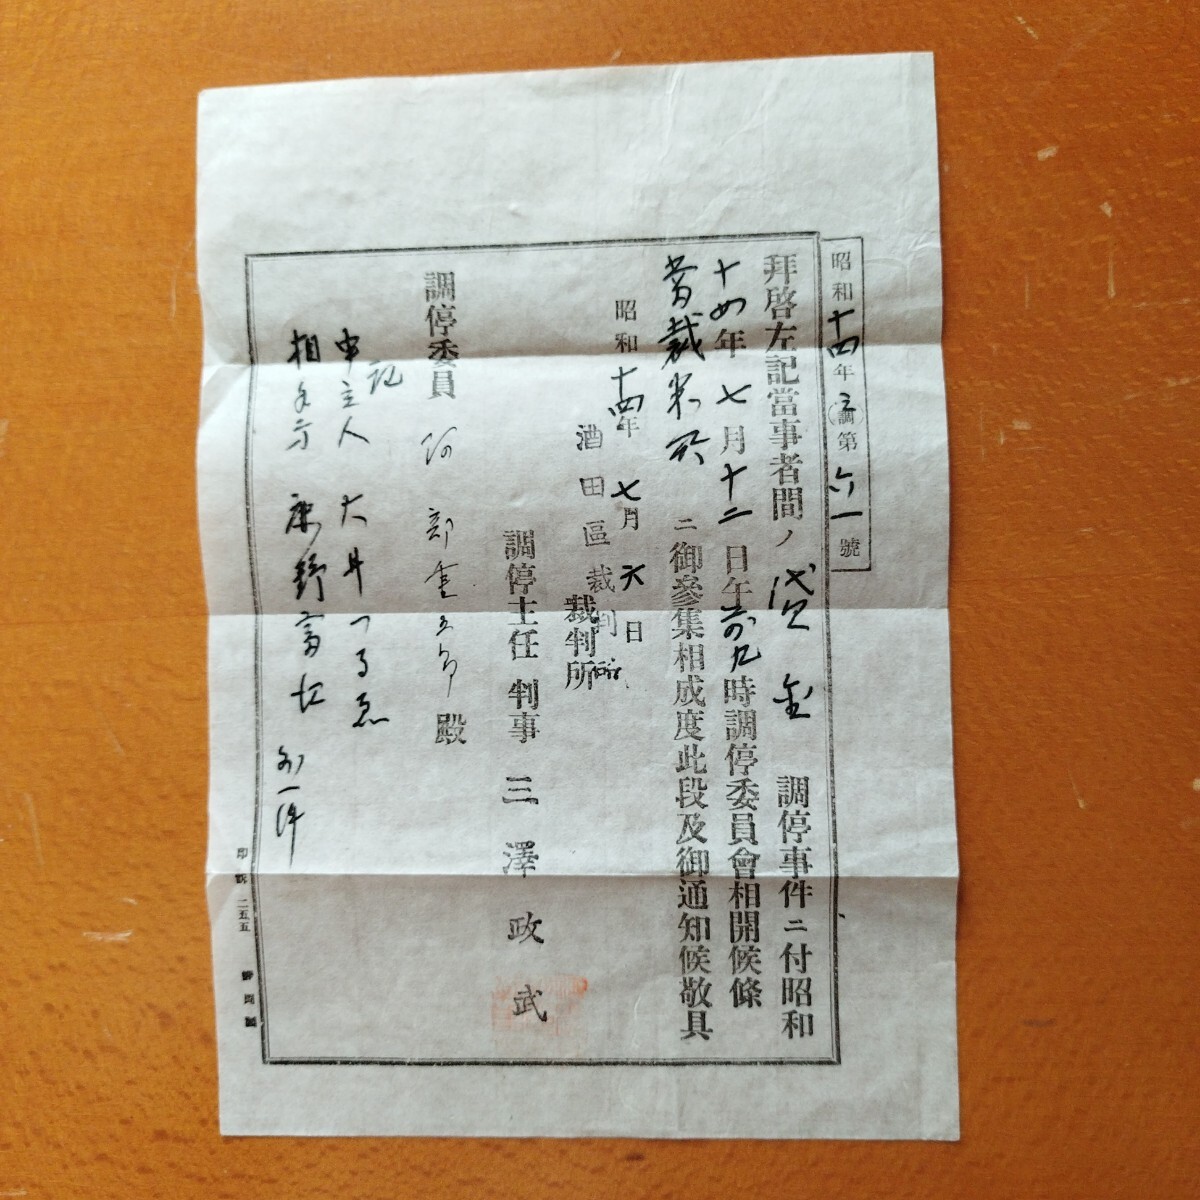 昭和十四年(調)第六一號
拝啓左記當事者間ノ貸金調停事件ニ付昭和
十四年七月十二日午前九時調停委員會相開候條
當裁判所ニ御參集相成度此段及御通知候敬具
昭和十四年七月六日
酒田區裁判所
裁判所
調停主任判事三澤政武
調停委員阿部金五郎殿
記
申立人大井つる
相手方野富
外一件
二五五